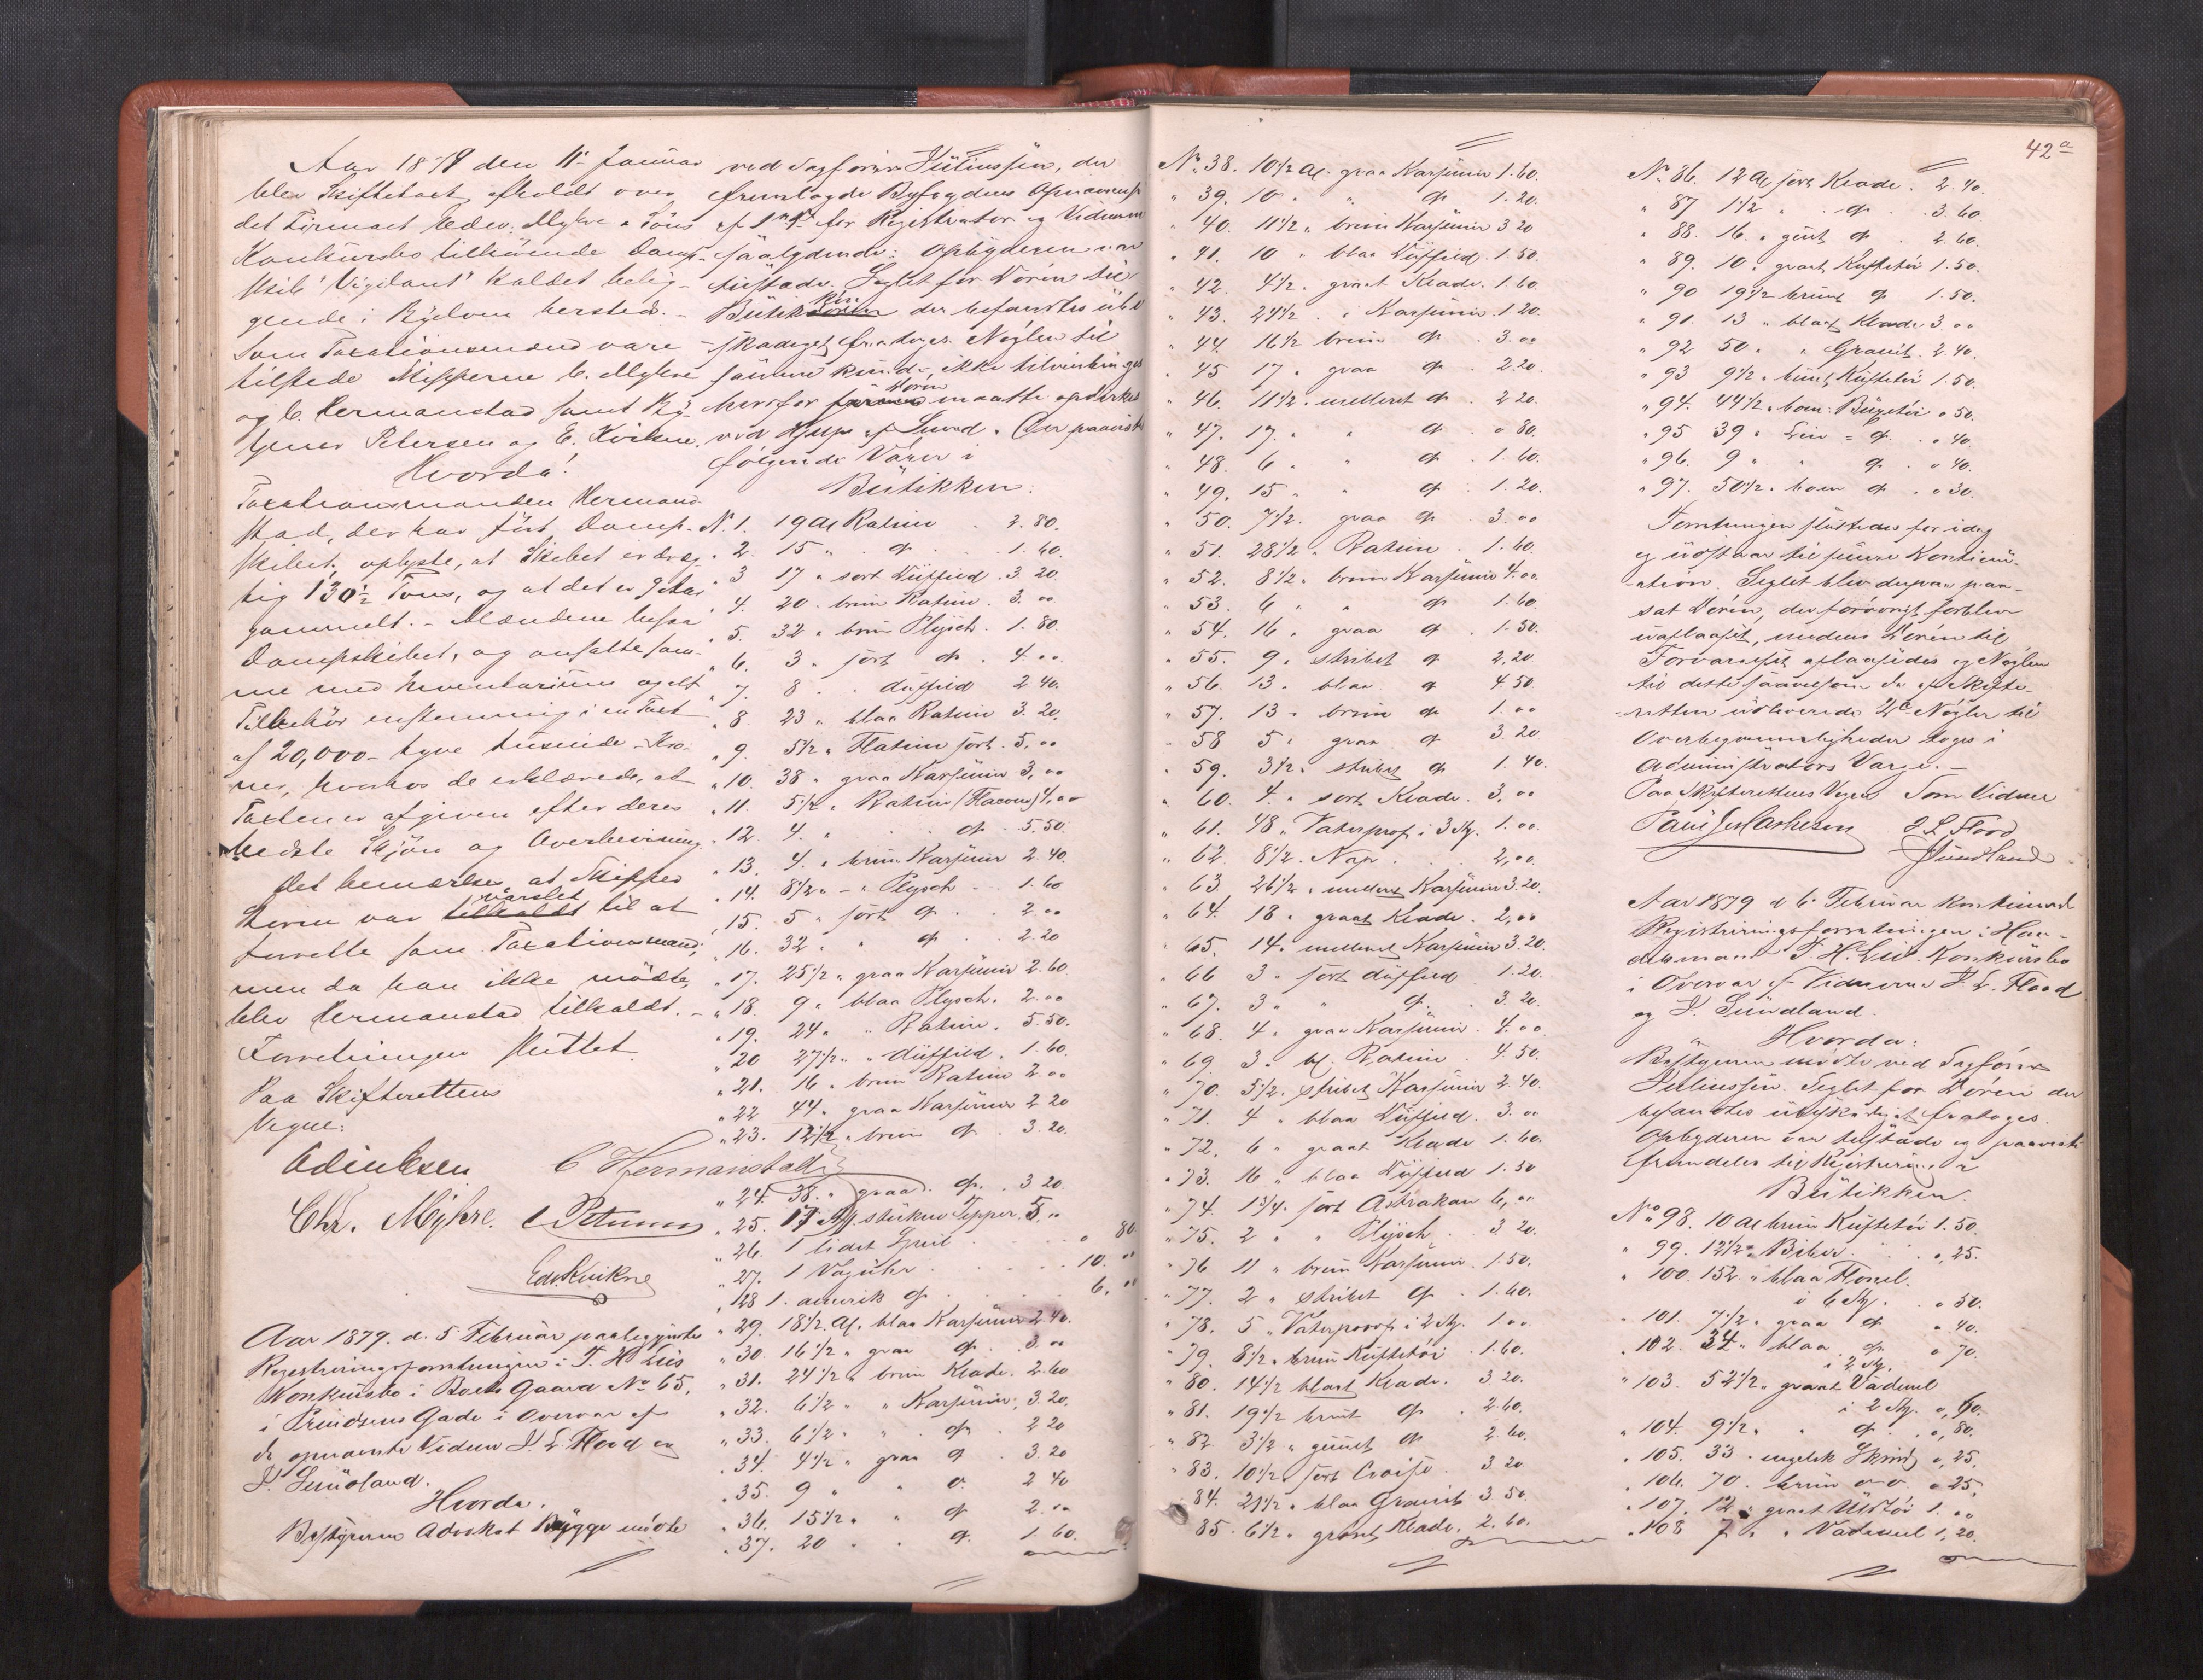 Aar 1879 den 11' Januar
blev Skifteret afholdt over
det Firmaet Edev. Myhre & Söns
Konkursbo tilhörende Damp-
skib "Vigilant" kaldet belig-
gende i Byelven hersteds. -
Som Taxationsmænd vare
tilstede Skipperne C. Myhre
og C. Hermanstad samt
Petersen og E. Kvikne.
Hvorda!
Taxationsmanden Herman-
stad, der har fört Damp-
skibet, oplyste, at Skibet er dræg-
tig 130 1/2 Tons, og at det er 9 Aar
gammelt. - Mændene besaa
Dampskibet, og ansatte sam-
me med Inventarium og alt
Tilbehör enstemmig i en Taxt
af 20,000 - tyve tusinde - Kro-
ner, hvorhos de erklærede, at
Taxten er afgiven efter deres
bedste Skjön og Overbevisning.
Det bemærkes, at Skipper
varslet
var tilkaldt til at
forrette som Taxationsmand,
men da han ikke mödte,
blev Hermanstad tilkaldt. -
Forretningen sluttet.
Paa Skifterettens
Vegne:
C Hermanstad
Chr. Myhre. C Petersen
Edv. Kvikne
Aar 1879. d. 5 Februar paabegyndtes
Registreringsforretningen i T. H. Lies
Konkursbo i Boets Gaard No 65,
i Prindsens Gade i Overvær af
de opnævnte Vidner J. L. Flood og
J. Sundland.
Hvorda.
Bestyreren Advokat Bügge mödte
ved Sagförer Juliussen, der
fremlagde Byfogdens Opnævnelse
af 1ste for Registrator og Vidnerne
saalydende: Opbyderen var
tilstæde. Seglet for Dören til
ken
Butik der befandtes übe-
skadiget fratoges. Nöglen til
samme kunde ikke tilveiebringes
Dören
hvorfor maatte opdirkes
ved Hjælp af Smed. Der paavistes
følgende Varer i
Butikken:
No 1. 19 Al Ratin . 2. 80.
" 2. 15 " do . 1. 60.
" 3 17 " sort Düffeld . 3. 20.
" 4. 20 " brun Ratin . 3. "
" 5. 32 " brun Plysch . 1. 80.
" 6. 3 " sort do . 4. "
" 7. 8 " " düffeld 2 40.
" 8 23 " blaa Ratin 3. 20.
" 9. 5 1/2 " Flatin sort . 5, "
" 10. 38 " graa Karsünir 3, "
" 11. 5 1/2 " Ratin (Flacon) 4, "
" 12. 4. " " do . 5. 50.
" 13. 4. " brun Karsünir 2. 40.
" 14. 8 1/2 " - " Plysch . 1. 60
" 15. 5 " sort do . 2. "
" 16. 32 " " do . 2. 20
" 17. 25 1/2 " graa Karsünir 2. 60.
" 18. 9 " blaa Plysch . 2. "
" 19. 24 " " Ratin . 5. 50.
" 20 27 1/2 " " düffeld . 1. 60.
" 21. 16 " brun Ratin 2. "
" 22 44 " graa Karsünir 2 20
" 23. 12 1/2 " brun do . 3. 20.
" 24. 38. " graa do . 3 20.
" 25. 17 Al. stükne Tepper. 5. "
" 26. 1 lidet Speil . " 80.
" 27. 1 Vægühr . 10. "
" 28 1. amerik do . 6, "
" 29. 18 1/2 Al. blaa Karsünir 2 40.
" 30. 16 1/2 " graa do . 3. "
" 31. 24 1/2 " brun Klæde. 2. 60
" 32. 6 1/2 " " Karsünir. 3. 20.
" 33. 6 1/2 " " do . 2 20
" 34. 4 1/2 " graa do . 3. 20
" 35. 9 " " do 2 40
" 36. 15 1/2 " " do 2. "
" 37. 20 " " do. 1. 60.
42 a
No. 38. 10 1/2 Al. graa Karsünir 1. 60.
" 39. 10 " " do 1. 20.
" 40. 11 1/2 " brun Karsünir 3 20
" 41. 10 " blaa Düffeld . 1. 50.
" 42. 4 1/2 " graat Klæde. 1. 60.
" 43. 24 1/2 . " Karsünir . 1 20.
" 44. 16 1/2 brun do . 3. "
" 45 17 " graa do . 2. 20.
" 46. 11 1/2 " melleret do . 2 20.
" 47. 17. " " do . " 80.
" 48. 6 " " do . 1. 60.
" 49. 15 " " do . 1. 20.
" 50. 7 1/2 . graa do . 3. "
" 51. 28 1/2 " Ratin . 1. 60.
" 52. 8 1/2 " brun Karsünir 4. "
" 53. 6 " " do 1. 60.
" 54. 16 " graa do . 1. 50.
" 55. 9 " stribet do 2, 20
" 56. 13. " blaa do 4. 50.
" 57. 13 " brun do 1. "
" 58 5 " graa do 3. 20
" 59. 3 1/2 " stribet do 1. 40.
" 60. 4. " sort Klæde. 3, "
" 61. 48 " Vaterprof i 3 St. 1. "
" 62. 8 1/2 . Nap . . 2, "
" 63. 26 1/2 " melleret Karsünir 3. 20.
" 64. 18 " graat Klæde . 2, "
" 65. 14 " melleret Karsünir 3. 20.
" 66 3 " sort düffeld . 1. 20.
" 67. 3 " " do . 3. 20.
" 68. 4 " graa Karsünir . 4. "
" 69 3 " bl. Ratin . 4. 50.
" 70. 5 1/2 . stribet Karsünir 2. 40.
" 71. 4 " blaa Düffeld . 3. "
" 72. 6 " graat Klæde 1. 60.
" 73. 16 " blaa Düffeld 1. 50
" 74. 1 3/4 . sort Astrakan 6, "
" 75. 2 " " Plysch . 3 20.
" 76 11 " brun Karsünir . 1. 50.
" 77. 2 " stribet do . 1. 60.
" 78. 5 " Vaterproof i 2 St. 1. "
" 79. 8 1/2 " brun Kuftetöi . 1. 60.
" 80. 14 1/2 blaat Klæde. 3 20.
" 81. 19 1/2 brunt do . 2. 60.
" 82 3 1/2 " grünt do 2. 60.
" 83. 10 1/2 sort Croise . 3 20
" 84. 21 1/2 " blaa Granit 3 50.
" 85. 6 1/2 " grönt Klæde. 2. 60.
No. 86. 12 Al sort Klæde . 2. 40.
" 87 1 1/2 " . do . 3. 60.
" 88. 16. " do . 2. 60.
" 89. 10 " graat Kuftetöi 1. 50.
" 90 19 1/2 brunt do 1. 50.
" 91. 13 " blaat Klæde 3. "
" 92 50 " " Granit . 2. 40.
" 93 9 1/2 " brunt Kuftetöi 1. 50.
" 94. 44 1/2 " bom: Büxetöi " 50.
" 95 39 " Lin = do . " 40.
" 96. 9 " " do . " 40.
" 97. 50 1/2 " bom do . " 30.
Forretningen sluttedes for idag
og üdstaar til senere Kontinü-
ation. Seglet blev derpaa paa-
sat Dören, der forövrigt forblev
uaflaaset, medens Dören til
Forværelset aflaasedes og Nöglen
til dette saavelsom de af Skifte-
retten üdleverede 2de Nögler til
Overbeqvemmeligheder toges i
Administrators Værge. -
Paa Skifterettens Vegne Som Vidner
J L Flood
J Sundland
Aar 1879 d 6' Februar kontinuert
Registreringsforretningen i Han-
delsmand T. H. Lies Konkursbo
i Overvær af Vidnerne J. L. Flood
og J. Sundland.
Hvorda:
Bestyreren mödte ved Sagförer
Juliussen. Seglet for Dören der
befandtes übeskadiget fratoges.
Opbyderen var tilstæde og paaviste
fremdeles til Registrering i
Butikken.
No 98. 10 Al brun Kuftetöi 1. 50.
" 99. 12 1/2 " Biber. . ", 25.
" 100. 152 " blaa Flonel.
i 6 St. . " 50.
" 101. 7 1/2 " graa do " 40.
" 102. 34 " blaa do " 70.
i 2 St.
" 103. 52 1/2 " graat Vadmel
i 2 St. ", 60.
" 104. 9 1/2 " " do . ", 80.
" 105. 33 " engelsk Skind ", 25.
" 106. 70 " brun " " " 25,
" 107. 12 " graat Uldtöi 1. "
" 108 7 " " Vadmel 1, 20.